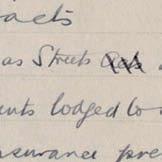 acts
as Streets
ents lodged to
nsurance pre